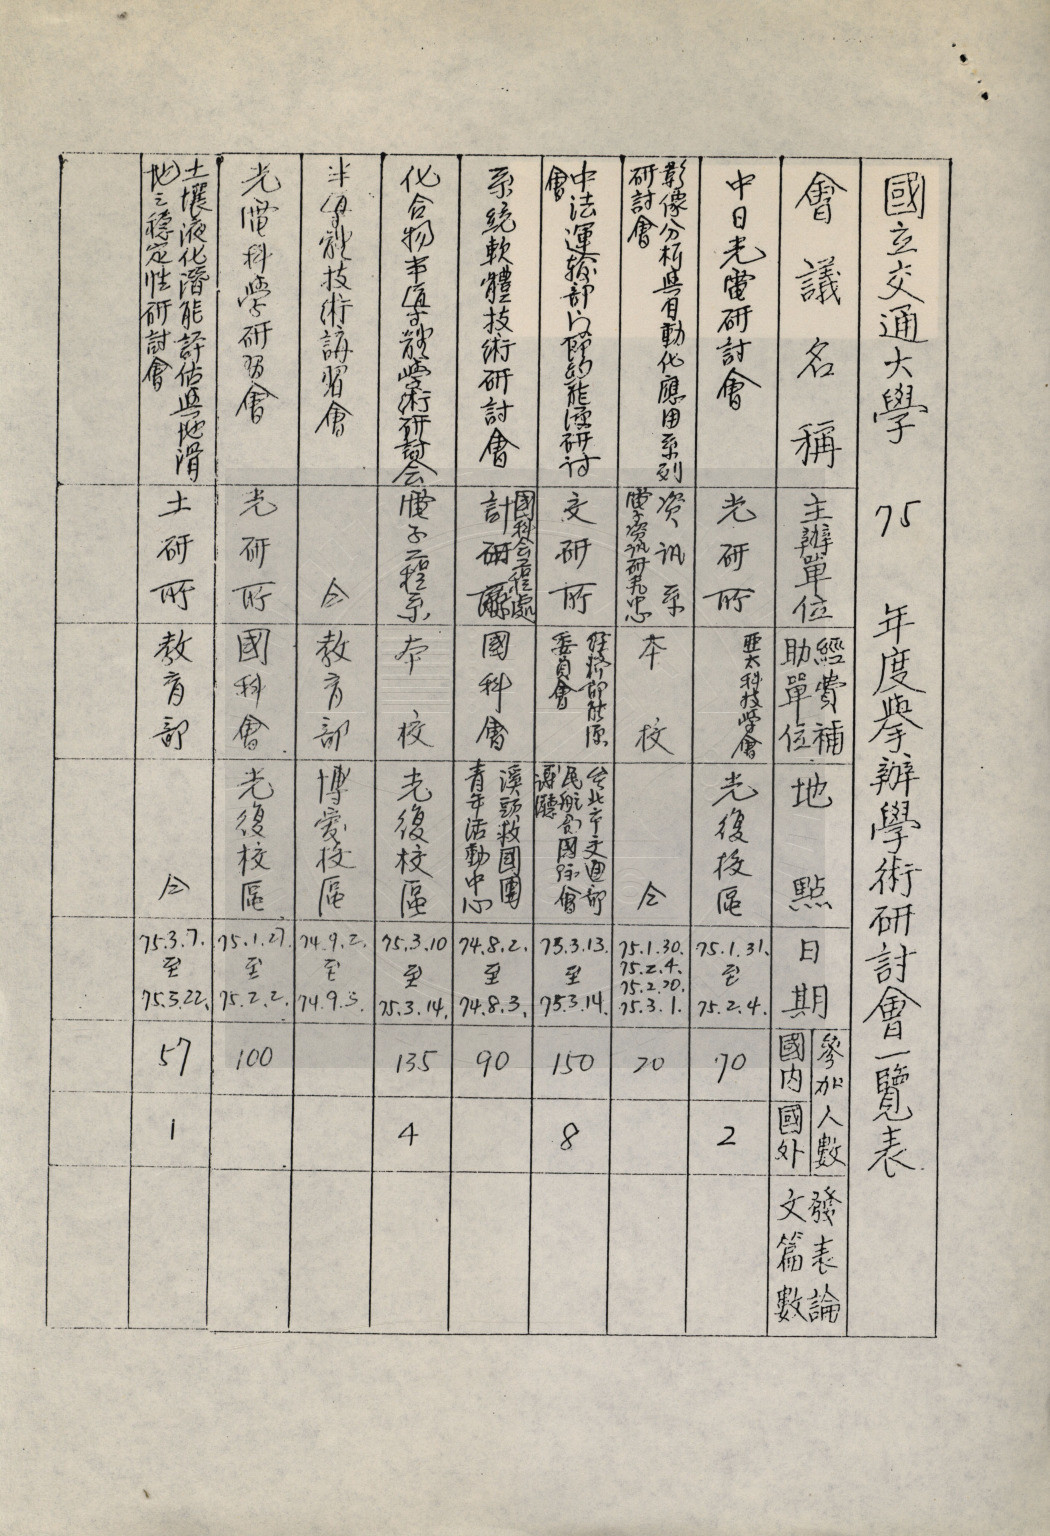 國立交通大學 75 年度舉辦學術研討會一覽表
會議名稱
主辦單位
經費補
助單位
地點
日期
參加人數
國內
國外
發表論
文篇數
中日光電研討會
光研所
亞太科技學會
光復校區
75.1.31.
至
75.2.4.
70
2
影像分析與自動化應用系列
研討會
資訊系
電子資訊研究中心
本校
仝
75.1.30.
75.2.4.
75.2.20.
75.3.1.
20
中法運輸部門節約能源研討
會
交研所
經濟部能源
委員會
台北市交通部
民航局國際會
議廳
75.3.13.
至
75.3.14.
150
8
系統軟體技術研討會
國科會工程處
計研
國科會
溪頭救國團
青年活動中心
74.8.2.
至
74.8.3.
90
化合物半導體學術研討会
電子工程系
本校
光復校區
75.3.10
至
75.3.14.
135
4
半導體技術講習會
仝
教育部
博愛校區
74.9.2.
至
74.9.3.
光電科學研習會
光研所
國科會
光復校區
75.1.27.
至
75.2.2.
100
土壤液化潛能評估與地滑
地之穩定性研討會
土研所
教育部
仝
75.3.7.
至
75.3.22.
57
1